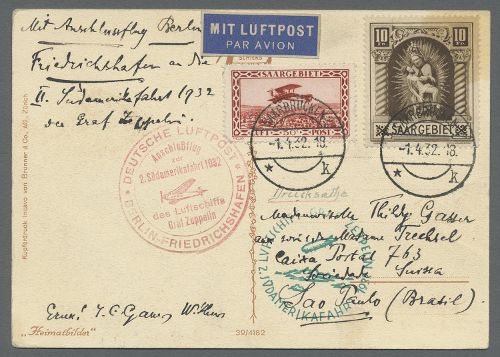 Mit Anschlussflug Berlin
Friedrichshafen an die
II. Südamerikafahrt 1932
des Graf Zeppelin.
MIT LUFTPOST
PAR AVION
SAARGEBIET
POST
10 10
SAARGEBIET
SAARBRÜCKEN
-1.4.32.18.
* k
-1.4.32.18.
* k
DEUTSCHE LUFTPOST
Anschlußflug
zur
2. Südamerikafahrt 1932
des Luftschiffs
Graf Zeppelin
BERLIN-FRIEDRICHSHAFEN
Drucksache
Mademoiselle Thildy Gasser
Madame Trechsel
Caixa Postal 763
Suissa
Sao Paulo (Brasil).
LUFTSCHIFF
ZEPPELIN
2. SÜDAMERIKAFAHRT 1932
Kupferdruck Insaro von Brunner & Co. AG. Zürich
„Heimatbilder"
39/4162